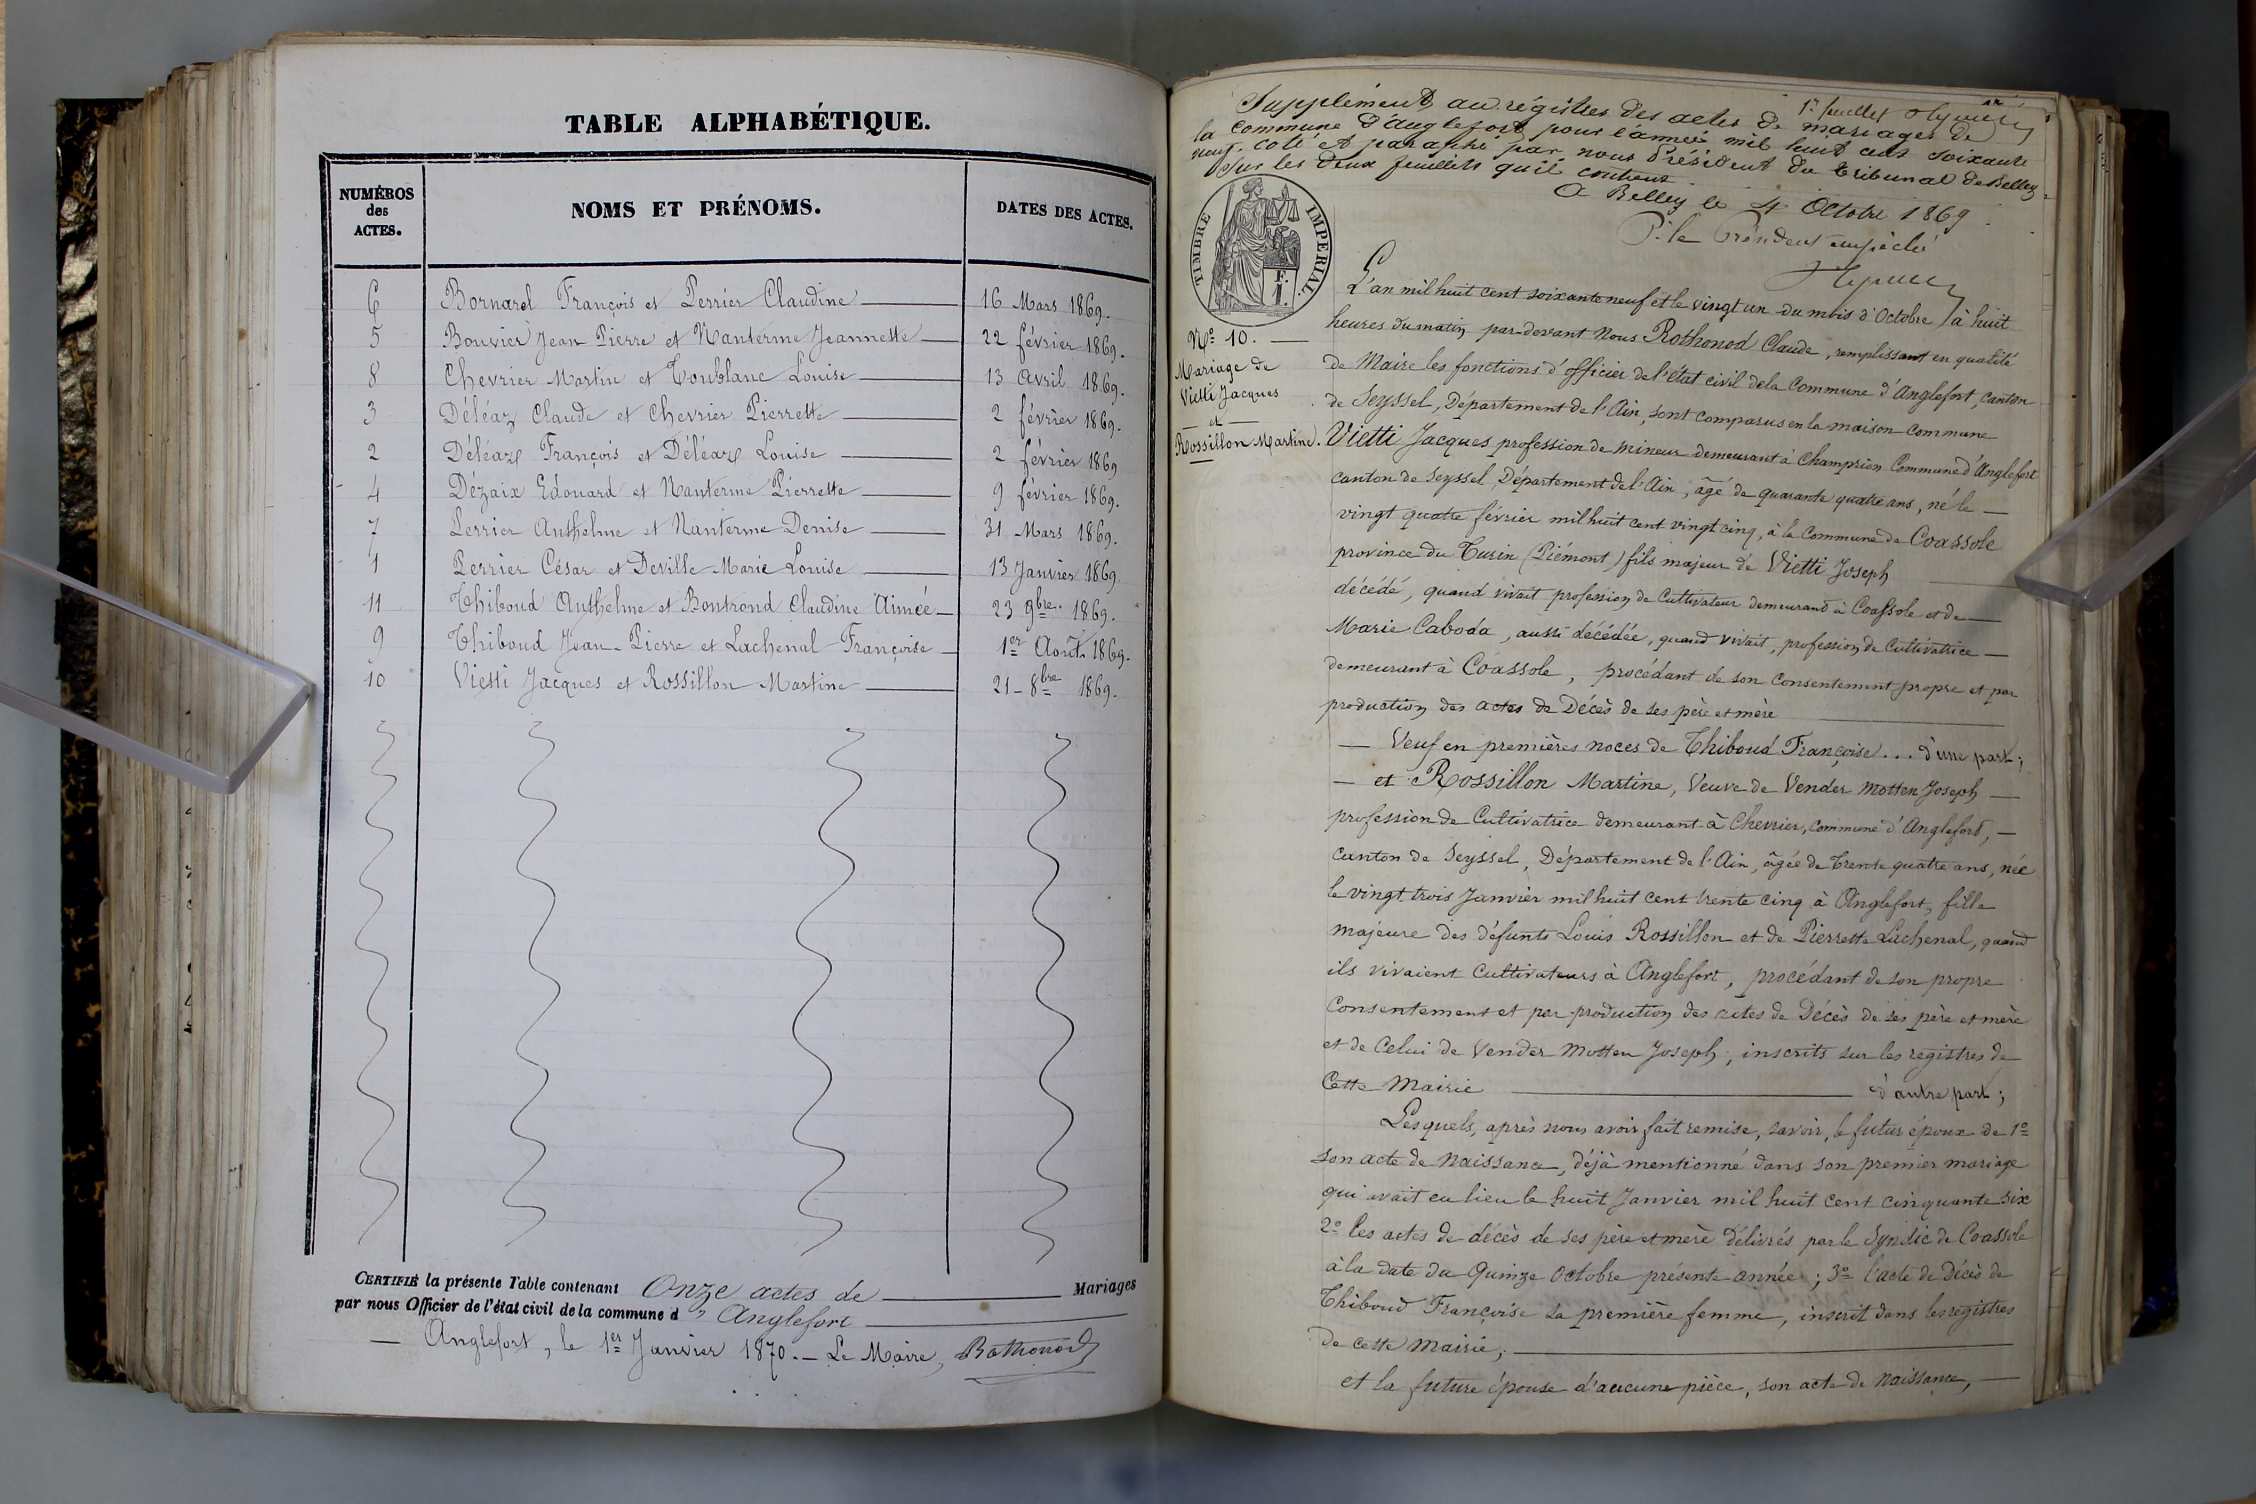 TABLE ALPHABÉTIQUE.
NUMÉROS des ACTES. NOMS ET PRÉNOMS. DATES DES ACTES.
6 Bornarel François et Perrier Claudine 16 Mars 1869.
5 Bouvier Jean Pierre et Nanterme Jeannette 22 février 1869.
8 Chevrier Martin et Toublanc Louise 13 Avril 1869.
3 Déléaz Claude et Chevrier Pierrette 2 février 1869.
2 Déléaz François et Déléaz Louise 2 février 1869
4 Dézaix Edouard et Nanterme Pierrette 9 février 1869.
7 Perrier Anthelme et Nanterme Denise 31 Mars 1869.
1 Perrier César et Deville Marie Louise 13 Janvier 1869
11 Thiboud Anthelme et Bontrond Claudine Aimée 23 9bre 1869.
9 Thiboud Jean-Pierre et Lachenal Françoise 1er Aout 1869.
10 Vietti Jacques et Rossillon Martine 21 8bre 1869.
CERTIFIÉ la présente Table contenant Onze actes de Mariages
par nous Officier de l'état civil de la commune d' Anglefort
Anglefort, le 1er Janvier 1870. Le Maire, Rothonod
1r feuillet
Supplément au régistres des actes de mariages de
la commune d'Anglefort pour l'année mil huit cent soixante
neuf. coté et paraphé par nous Président du tribunal de Belley
sur les deux feuillets qu'il contient
A Belley le 4 Octobre 1869.
P. le Président empêché
TIMBRE IMPERIAL.
F.
1.
No 10.
Mariage de
Vietti Jacques
et
Rossillon Martine.
L'an mil huit cent soixante neuf et le vingt un du mois d'Octobre à huit
heures du matin par-devant Nous Rothonod Claude, remplissant en qualité
de Maire les fonctions d'officier de l'état civil de la Commune d'Anglefort, canton
de Seyssel, Département de l'Ain, sont comparus en la maison commune
Vietti Jacques profession de mineur demeurant à Champrion Commune d'Anglefort
canton de Seyssel, Département de l'Ain, âgé de quarante quatre ans, né le
vingt quatre février mil huit cent vingt cinq, à la Commune de Coassole
province du Turin (Piémont) fils majeur de Vietti Joseph
décédé, quand vivait profession de Cultivateur demeurand à Coassole et de
Marie Caboda, aussi décédée, quand vivait, profession de Cultivatrice
demeurant à Coassole, procédant de son consentement propre et par
production des actes de Décès de ses père et mère
Veuf en premières noces de Thiboud Françoise... d'une part;
et Rossillon Martine, Veuve de Vender Motten Joseph
profession de Cultivatrice demeurant à Chevrier, commune d'Angleford,
canton de Seyssel, Département de l'Ain, âgée de trente quatre ans, née
le vingt trois Janvier mil huit cent trente cinq à Anglefort, fille
majeure des défunts Louis Rossillon et de Pierrette Lachenal, quand
ils vivaient Cultivateurs à Anglefort, procédant de son propre
Consentement et par production des actes de Décès de ses père et mère
et de Celui de Vender Motten Joseph, inscrits sur les registres de
Cette Mairie d'autre part;
Lesquels, après nous avoir fait remise, savoir, le futur époux de 1o
son acte de Naissance, déjà mentionné dans son premier mariage
qui avait eu lieu le huit Janvier mil huit cent cinquante six
2o les actes de décès de ses père et mère Délivrés par le Syndic de Coassole
à la date du Quinze Octobre présente année; 3o l'acte de Décès de
Thiboud Françoise sa première femme, inscrit dans les registres
de cette Mairie;
et la future épouse d'aucune pièce, son acte de Naissance,